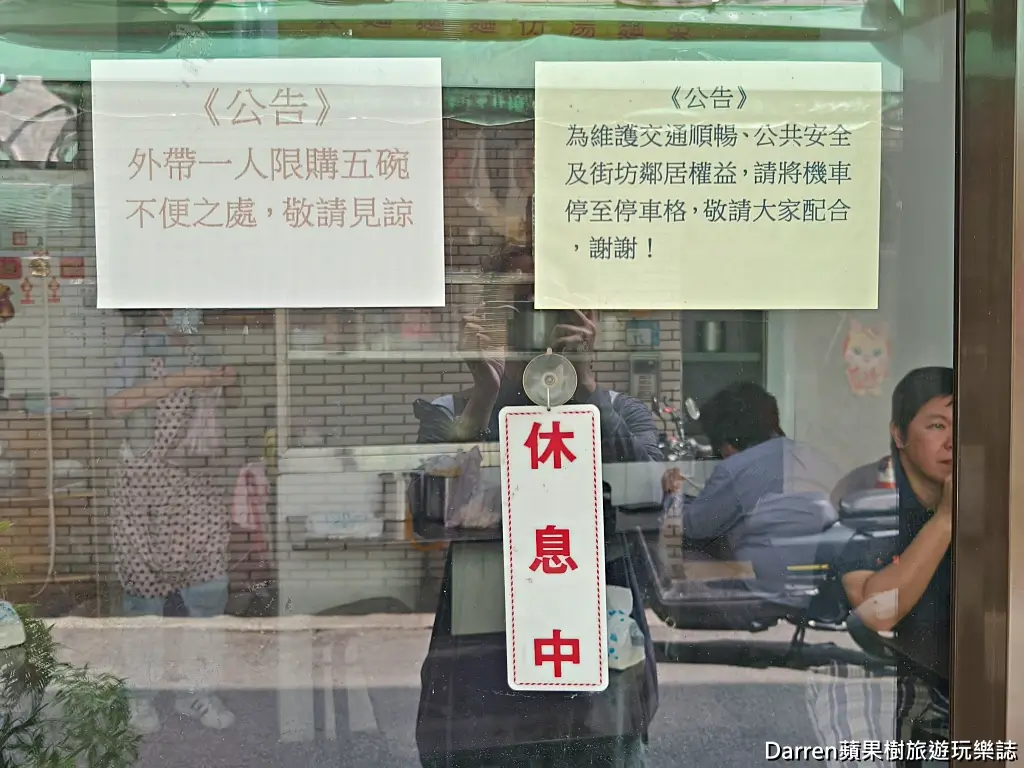 《公告》
外帶一人限購五碗
不便之處，敬請見諒
《公告》
為維護交通順暢、公共安全
及街坊鄰居權益，請將機車
停至停車格，敬請大家配合
，謝謝！
休
息
中
Darren蘋果樹旅遊玩樂誌